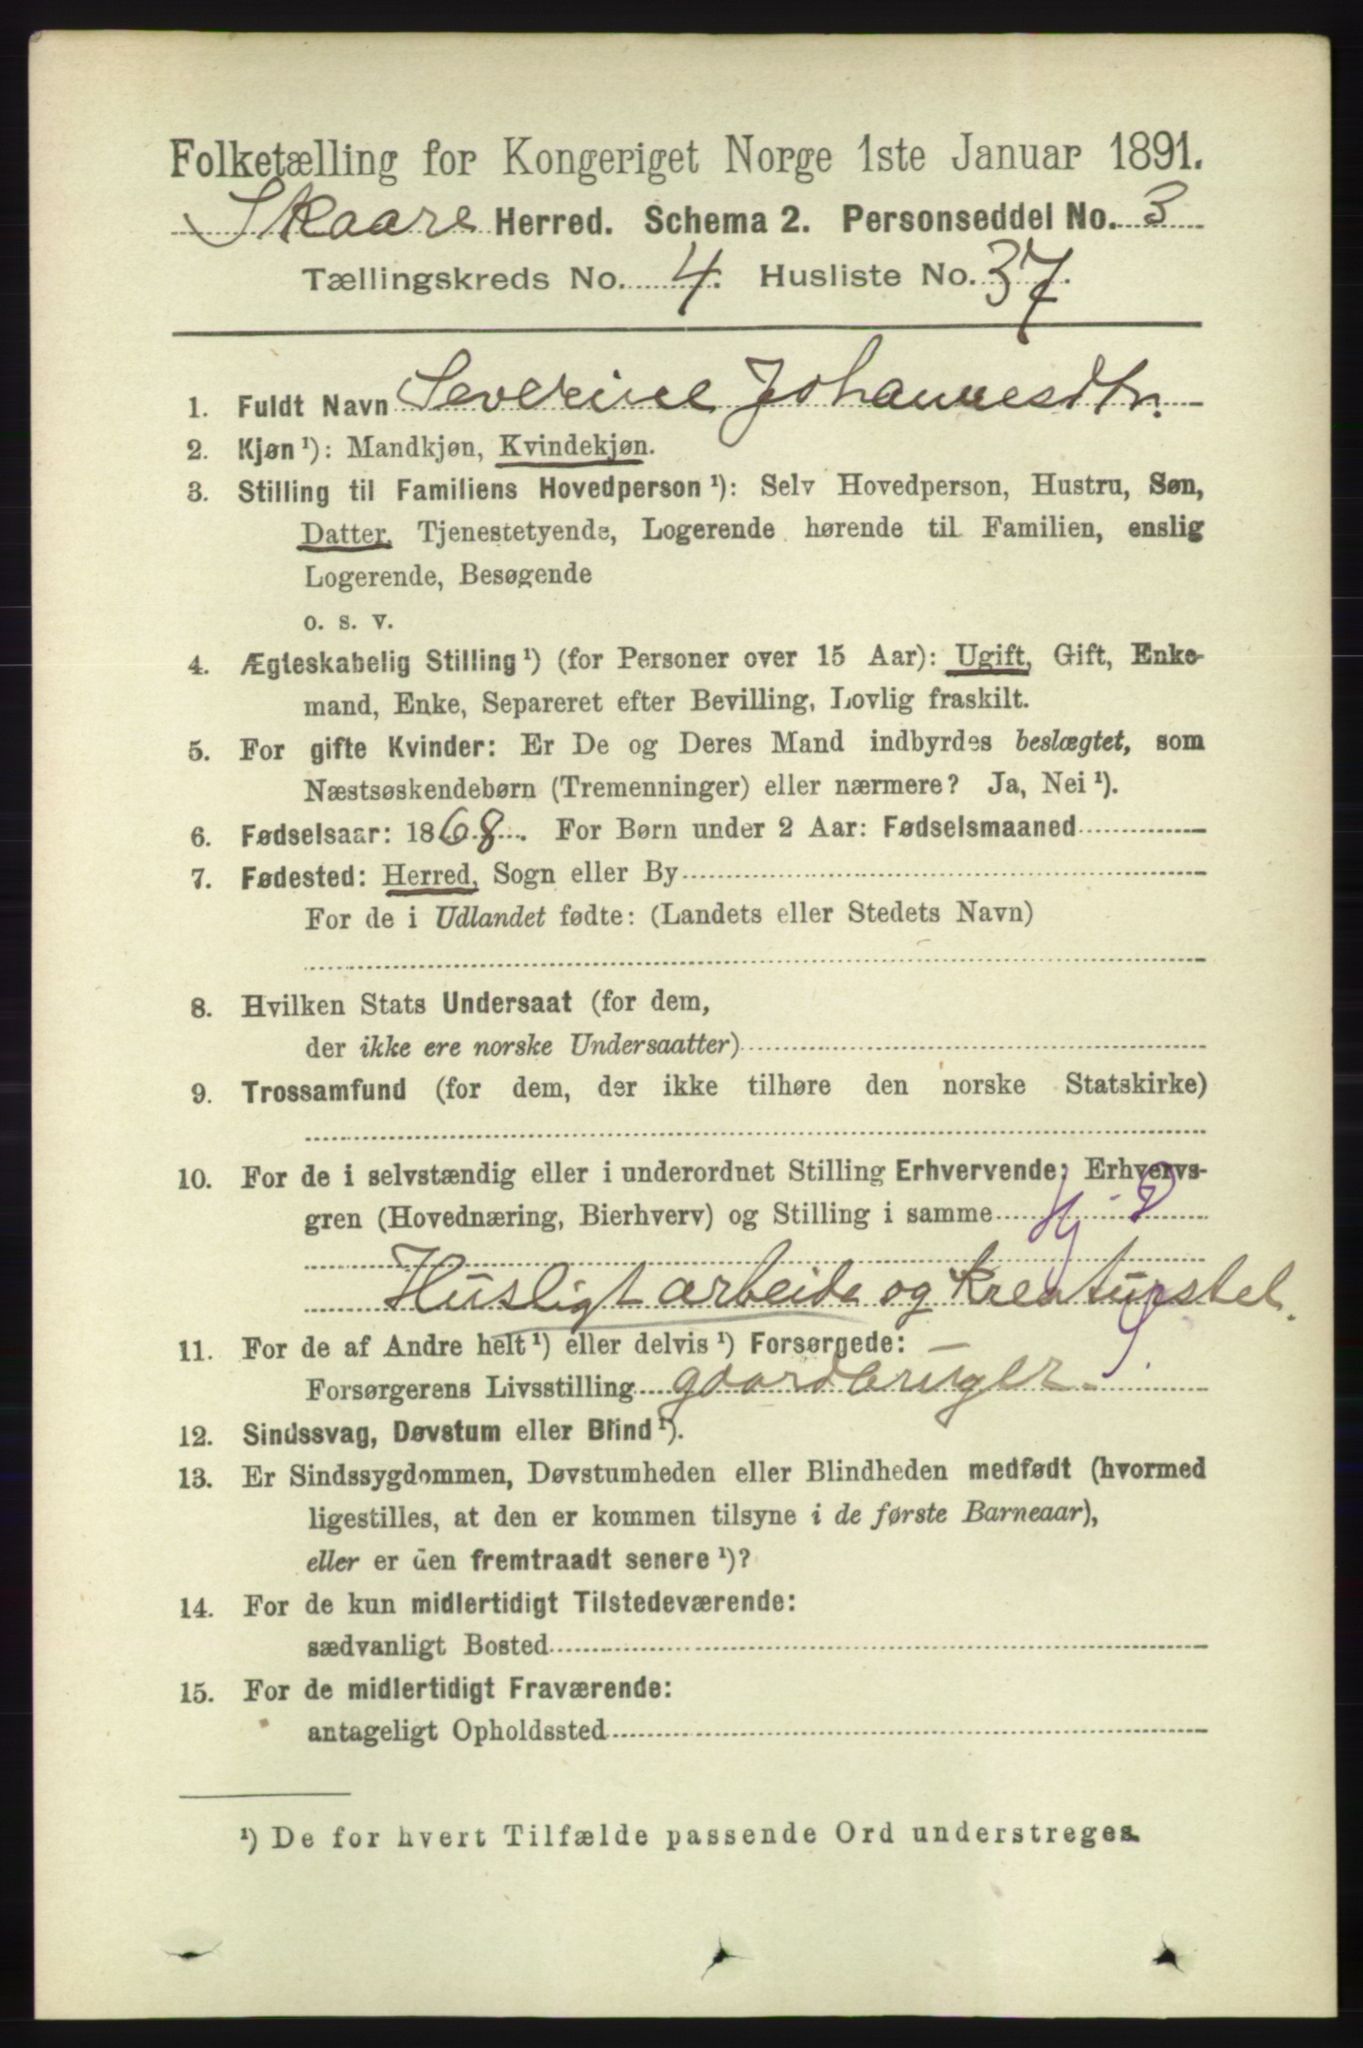 Folketælling for Kongeriget Norge 1ste Januar 1891.
Skaare Herred. Schema 2. Personseddel No. 3
Tællingskreds No. 4. Husliste No. 37.
1. Fuldt Navn Severine Johannesdtr.
2. Kjøn ¹): Mandkjøn, Kvindekjøn.
3. Stilling til Familiens Hovedperson ¹): Selv Hovedperson, Hustru, Søn,
Datter, Tjenestetyende, Logerende hørende til Familien, enslig
Logerende, Besøgende
o. s. v.
4. Ægteskabelig Stilling ¹) (for Personer over 15 Aar): Ugift, Gift, Enke-
mand, Enke, Separeret efter Bevilling, Lovlig fraskilt.
5. For gifte Kvinder: Er De og Deres Mand indbyrdes beslægtet, som
Næstsøskendebørn (Tremenninger) eller nærmere? Ja, Nei ¹).
6. Fødselsaar: 1868. For Børn under 2 Aar: Fødselsmaaned
7. Fødested: Herred, Sogn eller By
For de i Udlandet fødte: (Landets eller Stedets Navn)
8. Hvilken Stats Undersaat (for dem,
der ikke ere norske Undersaatter)
9. Trossamfund (for dem, der ikke tilhøre den norske Statskirke)
10. For de i selvstændig eller i underordnet Stilling Erhvervende: Erhvervs-
gren (Hovednæring, Bierhverv) og Stilling i samme
Husligt arbeide og kreaturstel.
11. For de af Andre helt ¹) eller delvis ¹) Forsørgede:
Forsørgerens Livsstilling gaardbruger.
12. Sindssvag, Døvstum eller Blind ¹).
13. Er Sindssygdommen, Døvstumheden eller Blindheden medfødt (hvormed
ligestilles, at den er kommen tilsyne i de første Barneaar),
eller er den fremtraadt senere ¹)?
14. For de kun midlertidigt Tilstedeværende:
sædvanligt Bosted
15. For de midlertidigt Fraværende:
antageligt Opholdssted
¹) De for hvert Tilfælde passende Ord understreges.